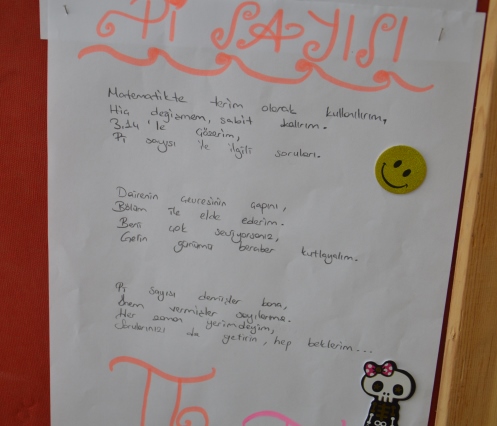 Pi SAYISI
Matematikte terim olarak kullanılırım,
Hiç değişmem, sabit kalırım.
3,14'le çözerim,
Pi sayısı ile ilgili soruları.
Dairenin çevresinin çapını,
Bölüm ile elde ederim.
Beni çok seviyorsanız,
Gelin günümü beraber kutlayalım.
Pi sayısı demişler bana,
Önem vermişler sayılarıma.
Her zaman yerimdeyim,
Sorularınızı da getirin, hep beklerim...